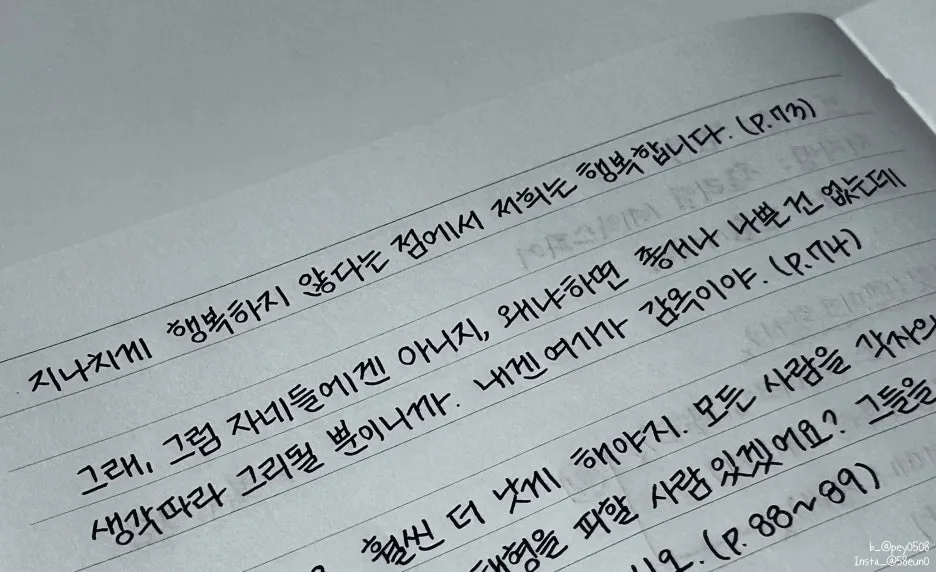 지나치게 행복하지 않다는 점에서 저희는 행복합니다. (P.73)
그래, 그럼 자네들에겐 아니지, 왜냐하면 좋거나 나쁠 건 없는데
생각따라 그리될 뿐이니까. 내겐 여기가 감옥이야. (P.74)
훨씬 더 낫게 해야지. 모든 사람을 각자의
태형을 피할 사람 있겠어요? 그들을
(P.88~89)
b_@pey0508
Insta_@58eun0